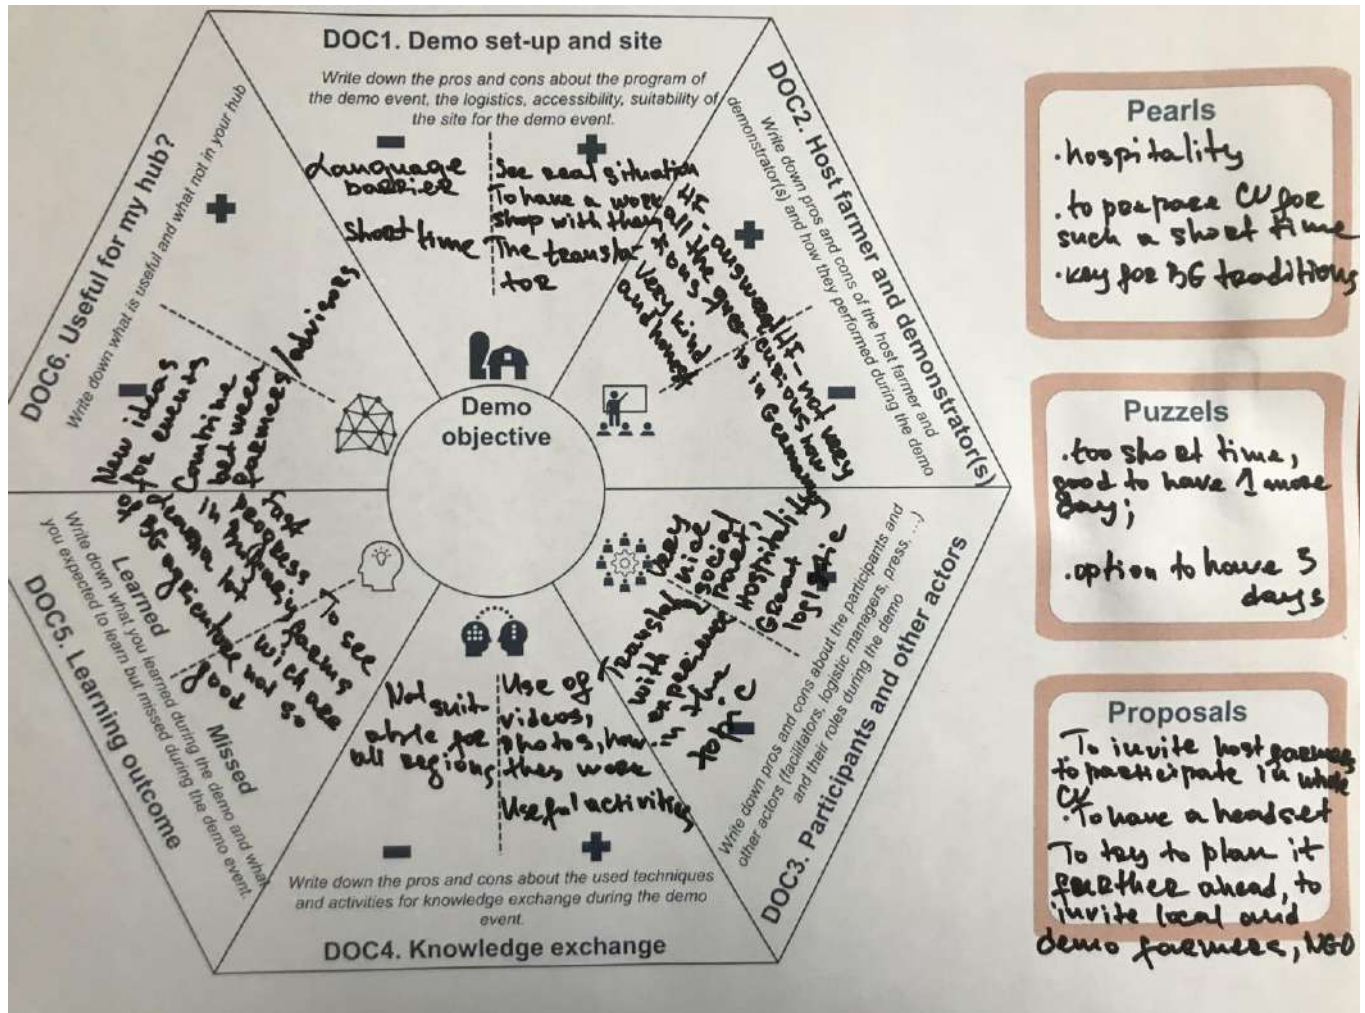 DOC1. Demo set-up and site
Write down the pros and cons about the program of
the demo event, the logistics, accessibility, suitability of
the site for the demo event.
Language
barrier
Short time
See real situation
To have a work
shop with them
The transla-
tor
DOC2. Host farmer and demonstrator(s)
Write down pros and cons of the host farmer and
demonstrator(s) and how they performed during the demo
HF - answered
all the ques-
tions
Very kind
and honest
HF - not very
curious how
is in Germany
DOC3. Participants and other actors
Write down pros and cons about the participants and
other actors (facilitators, logistic managers, press, ....)
and their roles during the demo
Very
nice
social
part;
Hospitality
Great
logistic
Translator
with
experience
in the
topic
DOC4. Knowledge exchange
Write down the pros and cons about the used techniques
and activities for knowledge exchange during the demo
event.
Not suit-
able for
all regions
Use of
videos,
photos, how
they work
Useful activities
DOC5. Learning outcome
Write down what you learned during the demo and what
you expected to learn but missed during the demo event.
Learned
Fast
progress
in
Learn a lot
of BG agriculture
Missed
To see
farms
wich are
not so
good
DOC6. Useful for my hub?
Write down what is useful and what not in your hub
New ideas
for events
Combine
between
farmers/advisors
Demo
objective
Pearls
·hospitality
·to prepare CV for
such a short time
·key for BG traditions
Puzzels
·too short time,
good to have 1 more
day;
·option to have 3
days
Proposals
To invite host farmers
to participate in whole
CV
·To have a headset
To try to plan it
further ahead, to
invite local and
demo farmers, NGO